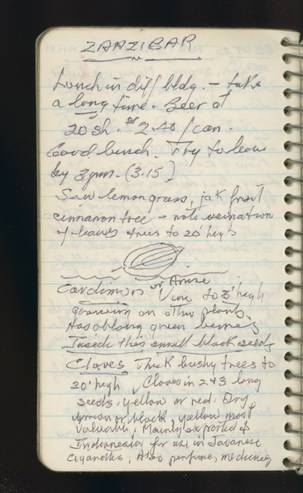 ZANZIBAR
Lunch in diff bldg. – take
a long time. Beer at
20 sh. or 2.40/can.
Good lunch. Try to leave
by 3 pm. (3.15)
Saw lemon grass, jak fruit
cinnamon tree – note veination
of leaves trees to 20' high
Cardimon or Anise
Vine to 8' high
growing on other plants,
Has oblong green berries
Inside this small black seeds
Cloves. Thick bushy trees to
20' high, Cloves in 2+3 long
seeds, yellow or red. Dry
brown or black, yellow most
valuable, Mainly exported to
Indonesia for use in Javanese
cigarettes, Also perfume, medicines